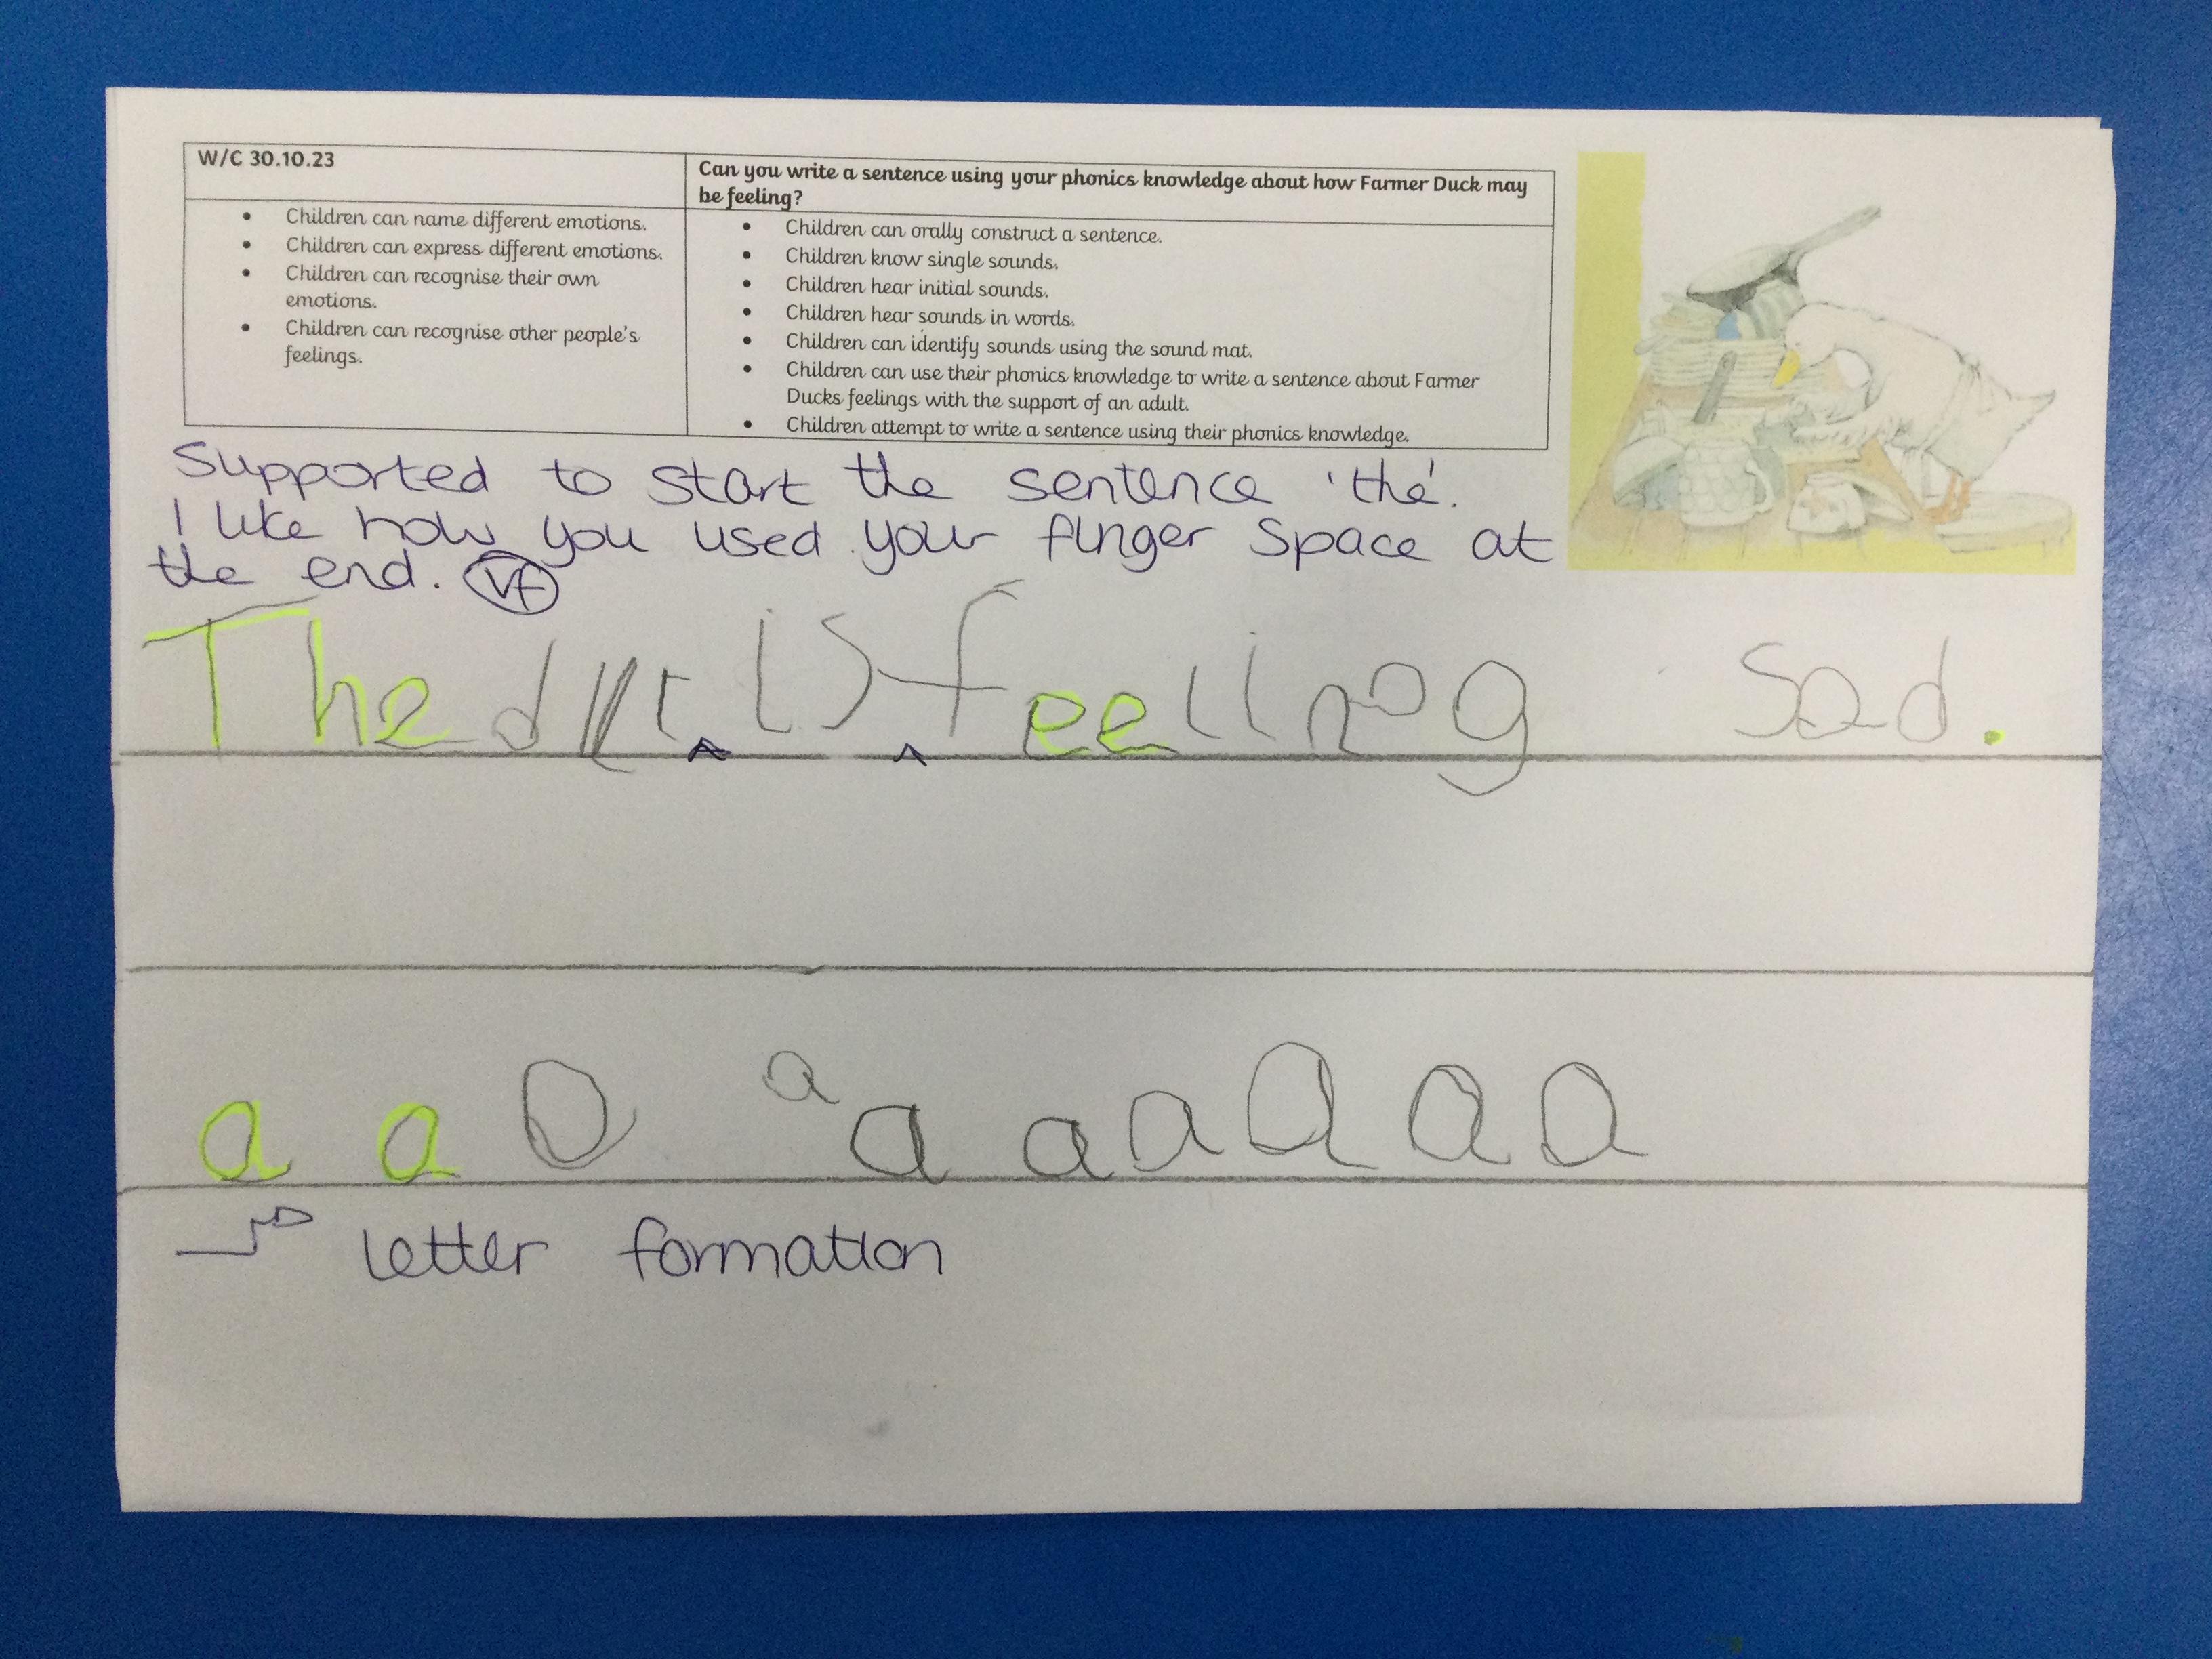 W/C 30.10.23
Children can name different emotions.
Children can express different emotions.
Children can recognise their own
emotions.
Children can recognise other people's
feelings.
Can you write a sentence using your phonics knowledge about how Farmer Duck may
be feeling?
Children can orally construct a sentence.
Children know single sounds.
Children hear initial sounds.
Children hear sounds in words.
Children can identify sounds using the sound mat.
Children can use their phonics knowledge to write a sentence about Farmer
Ducks feelings with the support of an adult.
Children attempt to write a sentence using their phonics knowledge.
Supported to start the sentence 'the'.
I like how you used your finger space at
the end. VF
The is feeling sad.
a a a a a a a a a a
letter formation